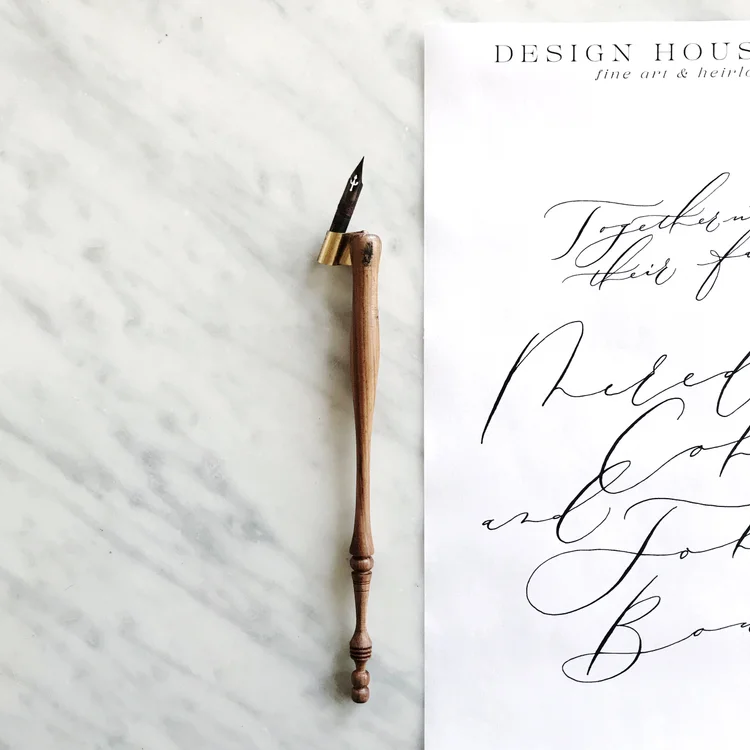 DESIGN HOUS
fine art & heirlo
Together
their
Mered
Coh
and Joh
Bow